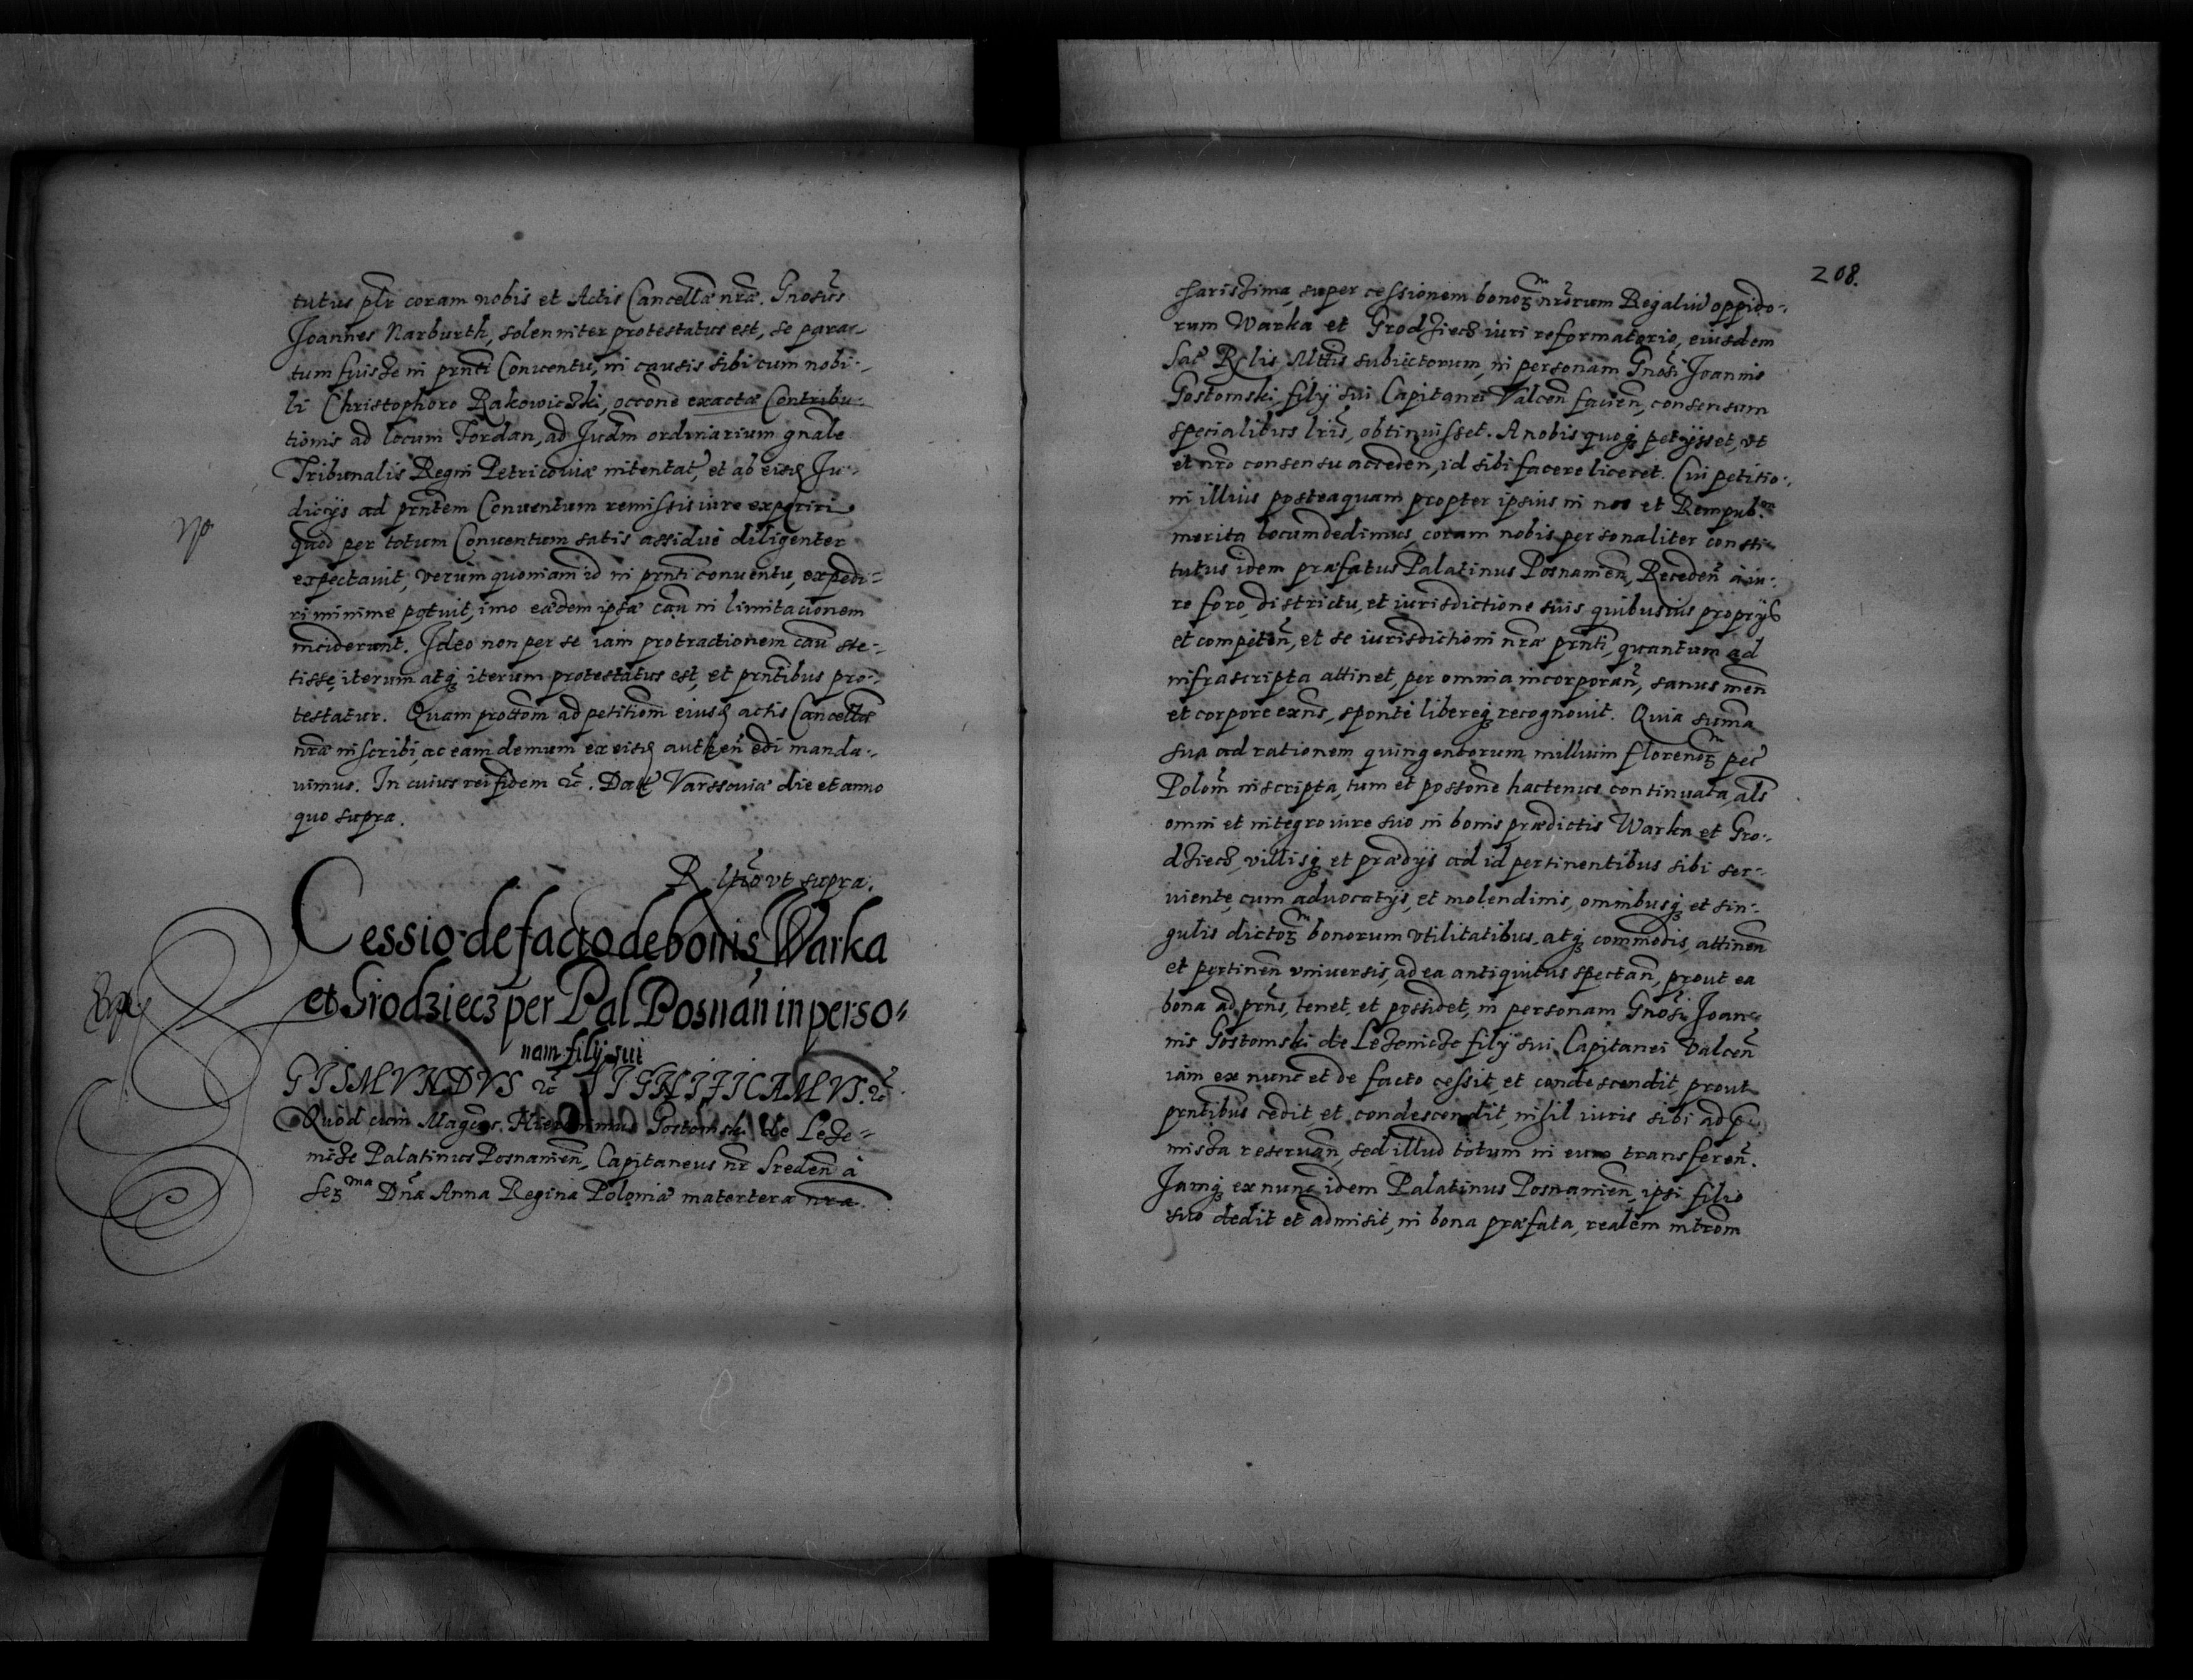 tutus plr coram nobis et Actis Cancellæ nræ. Gnosus
Joannes Narburth, solenniter protestatus est, se para-
tum fuisse in prnti Conuentu, in causis sibi cum nobi-
li Christophoro Rakowieczki, occone exactæ Contribu-
tionis ad locum Fordan, ad Judm ordinarium gnale
Tribunalis Regni Petricouiæ intentat, et ab eisd Ju-
dicijs ad prntem Conuentum remissis iure experiri
quod per totum Conuentum satis assidue diligenter
expectauit, verum quoniam id in prnti conuentu, expedi-
ri minime potuit, imo eædem ipsæ cau in limitationem
inciderunt. Ideo non per se iam protractionem cau ste-
tisse, iterum atq iterum protestatus est, et prntibus pro-
testatur. Quam prottom ad petitiom eiusd actis Cancellæ
nræ inscribi, ac eam demum ex eisd authen edi manda-
uimus. In cuius rei fidem etc. Dat Varssouiæ die et anno
quo supra.
Rltio vt supra.
Cessio de facto de bonis Warka
et Grodziecz per Pal Posnan in perso-
nam filij sui
GISMVNDVS etc SIGNIFICAMVS. etc
Quod cum Magcus. Hieronimus Gostomski de Leze-
nicze Palatinus Posnanien, Capitaneus nr Sreden a
Ser ma Dna Anna Regina Poloniæ matertera nra
208.
charissima, super cessionem bonor nrorum Regaliu oppido-
rum Warka et Grodziecz iuri reformatorio, eiusdem
Sac Rglis Mttis subiectorum, in personam Gnosi Joannis
Gostomski filij sui Capitanei Valcen facien, consensum
specialibus lris, obtinuisset. A nobis quoq petijsset, vt
et nro consensu acceden, id sibi facere liceret. Cui petitio-
ni illius posteaquam propter ipsius in nos et Rempub.
merita locum dedimus, coram nobis personaliter consti-
tutus idem præfatus Palatinus Posnanien, Receden a iu-
re foro, districtu, et iurisdictione suis quibusuis proprijs
et competen, et se iurisdictioni nræ prnti, quantum ad
infrascripta attinet, per omnia incorporan, sanus men
et corpore exns, sponte libereq recognouit. Quia summa
sua ad rationem quingentorum millium florenor pec
Polom inscripta, tum et possone hactenus continuata, als
omni et integro iure suo in bonis prædictis Warka et Gro-
dziecz, villisq et prædijs ad id pertinentibus sibi ser-
uiente, cum aduocatijs, et molendinis, omnibusq et sin-
gulis dictor bonorum vtilitatibus, atq commodis, attinen
et pertinen vniuersis, ad ea antiquitus spectan, prout ea
bona ad prns, tenet, et possidet, in personam Gnosi Joan-
nis Gostomski de Lezenicze filij sui Capitanei Valcen
iam ex nunc et de facto cessit, et condescendit, prout
prntibus cedit, et condescendit, nihil iuris sibi ad p-
missa reseruan, sed illud totum in eum transferen.
Jamq ex nunc idem Palatinus Posnanien, ipsi filio
suo dedit et admisit, in bona præfata, realem introm